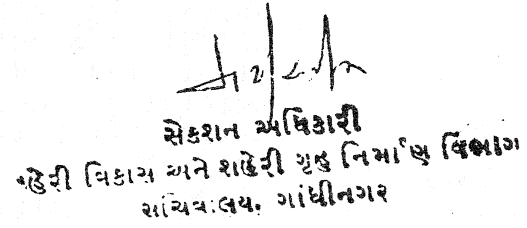 સેકશન અધિકારી
શહેરી વિકાસ અને શહેરી ગૃહ નિર્માણ વિભાગ
સચિવાલય, ગાંધીનગર